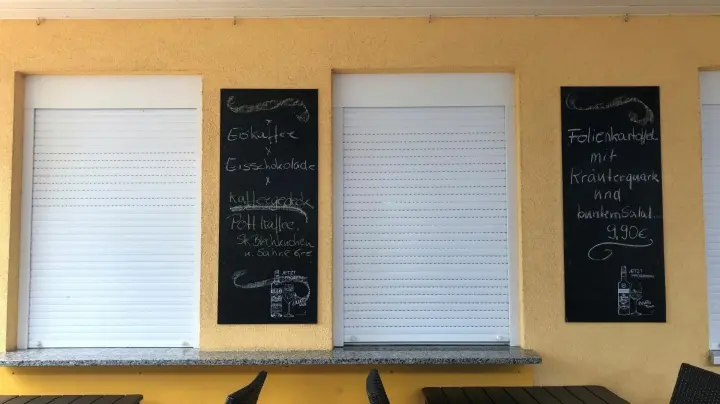 Eiskaffee
x
Eisschokolade
x
Kaffeegedeck
Pott Kaffee,
Stk. Blechkuchen
u. Sahne
JETZT
Folienkartoffel
mit
Kräuterquark
und
buntem Salat
9,90€
JETZT